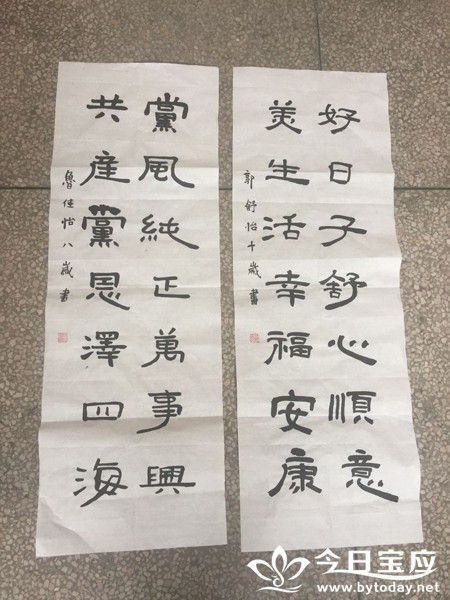 好日子舒心順意
美生活幸福安康
郭舒怡十歲書
黨風純正萬事興
共産黨恩澤四海
魯佳怡八歲書
今日宝应
www.bytoday.net